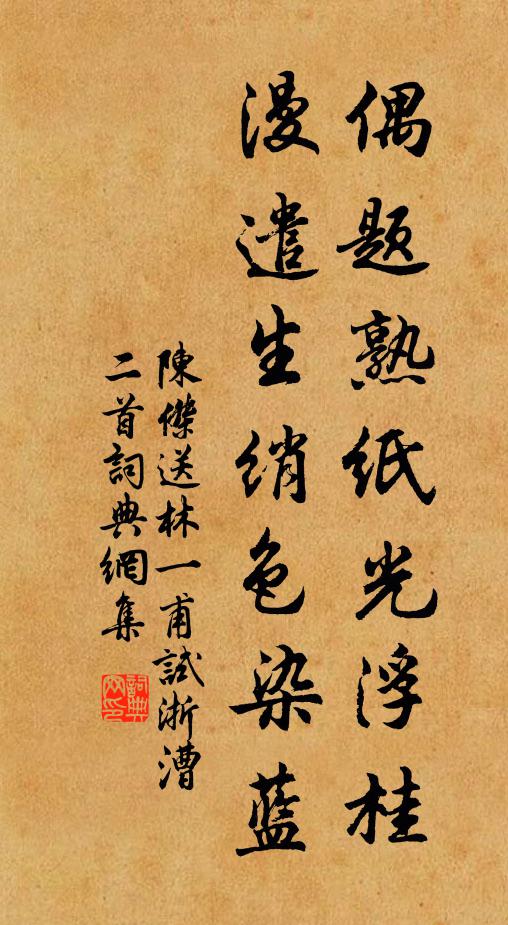 偶題熟紙光浮桂
漫遣生綃色染藍
陳傑送林一甫試浙漕
二首詞典網集
詞典網印